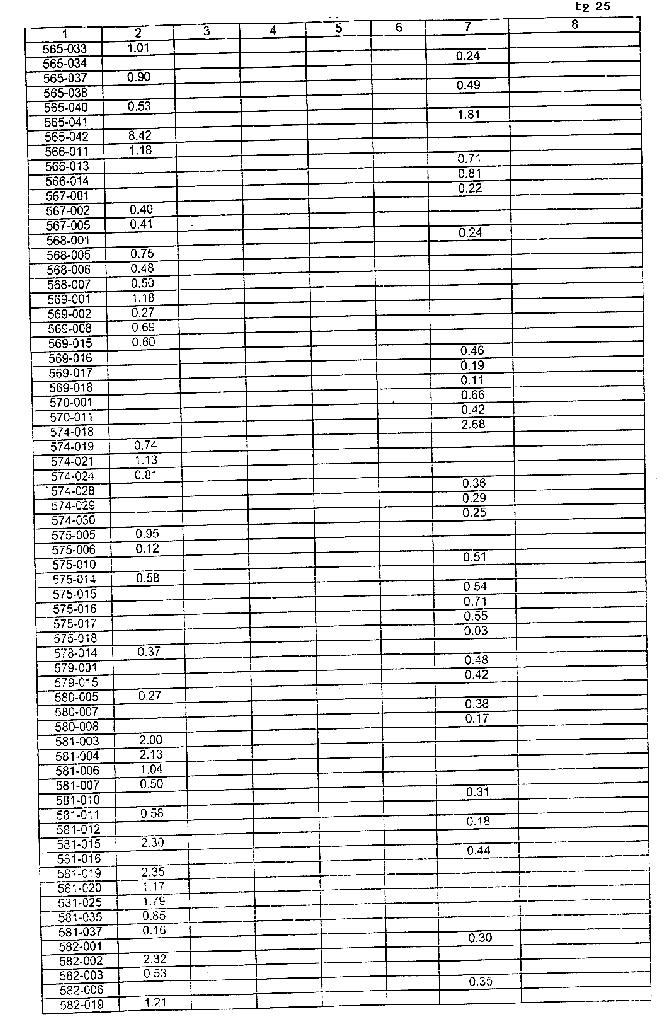 Eg 25
1 2 3 4 5 6 7 8
565-033 1.01
565-034 0.24
565-037 0.90
565-038 0.49
565-040 0.53
565-041 1.81
565-042 8.42
566-011 1.18
566-013 0.71
566-014 0.81
567-001 0.22
567-002 0.40
567-005 0.41
568-001 0.24
568-005 0.75
568-006 0.48
568-007 0.53
569-001 1.18
569-002 0.27
569-008 0.69
569-015 0.60
569-016 0.46
569-017 0.19
569-018 0.11
570-001 0.66
570-011 0.42
574-018 2.68
574-019 0.74
574-021 1.13
574-024 0.81
574-028 0.36
574-029 0.29
574-030 0.25
575-005 0.95
575-006 0.12
575-010 0.51
575-014 0.58
575-015 0.54
575-016 0.71
575-017 0.55
575-018 0.03
578-014 0.37
579-001 0.48
579-015 0.42
580-005 0.27
580-007 0.38
580-008 0.17
581-003 2.00
581-004 2.13
581-006 1.04
581-007 0.50
581-010 0.31
581-011 0.56
581-012 0.18
581-015 2.30
581-016 0.44
581-019 2.35
581-020 1.17
581-025 1.79
581-035 0.85
581-037 0.16
582-001 0.30
582-002 2.32
582-003 0.53
582-006 0.35
582-019 1.21